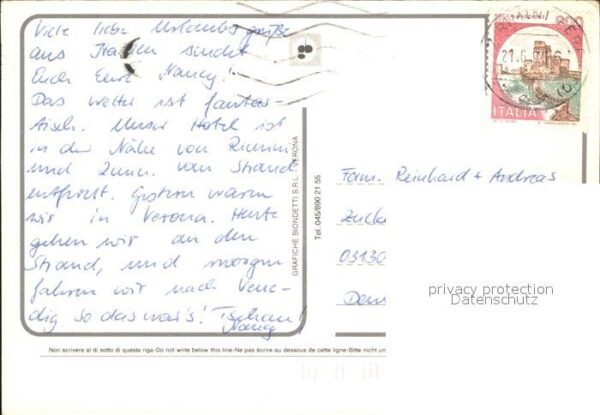 Viele liebe Urlaubsgrüße
aus Italien sendet
Euch Eure Nancy!
Das Wetter ist fantas-
tisch. Unser Hotel ist
in der Nähe von Rimini
und 2 min. vom Strand
entfernt. Gestern waren
wir in Verona. Heute
gehen wir an den
Strand, und morgen
fahren wir nach Vene-
dig. So das war's! Tschau!
Nancy
GRAFICHE BIONDETTI S.R.L. - VERONA
Tel. 045/890 21 55
ITALIA
21.6
Fam. Reinhard + Andreas
Zucke
03130
Deu
privacy protection
Datenschutz
Non scrivere al di sotto di questa riga-Do not write below this line-Ne pas écrire au dessous de cette ligne-Bitte nicht un